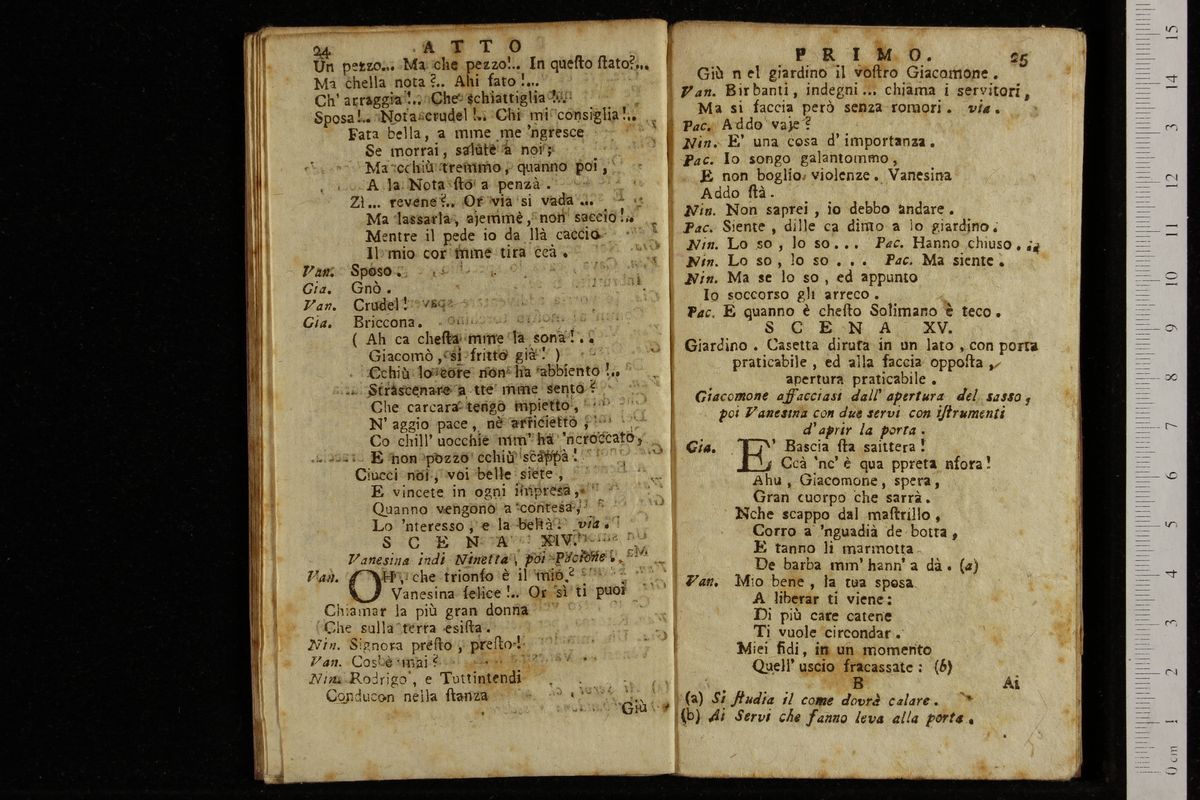 24 ATTO
Un pezzo... Ma che pezzo!.. In questo stato?...
Ma chella nota?.. Ahi fato!...
Ch' arraggia!.. Che schiattiglia!..
Sposa!.. Nota crudel!.. Chi mi consiglia!..
Fata bella, a mme me 'ngresce
Se morrai, salute a noi;
Ma cchiù tremmo, quanno poi,
A la Nota sto a penzà.
Zì... revene?.. Or via si vada...
Ma lassarla, ajemmè, non saccio!..
Mentre il pede io da llà caccio
Il mio cor mme tira ccà.
Van. Sposo.
Gia. Gnò.
Van. Crudel!
Gia. Briccona.
( Ah ca chesta mme la sona!..
Giacomò, si fritto già! )
Cchiù lo core non ha abbiento!..
Strascenare a tte mme sento?
Che carcara tengo mpietto,
N' aggio pace, nè arricietto,
Co chill' uocchie mm' ha 'ncroccato,
E non pozzo cchiù scappà!
Ciucci noi, voi belle siete,
E vincete in ogni impresa,
Quanno vengono a contesa,
Lo 'nteresso, e la beltà. via.
SCENA XIV.
Vanesina indi Ninetta, poi Pacione.
Van. OH, che trionfo è il mio?
Vanesina felice!.. Or sì ti puoi
Chiamar la più gran donna
Che sulla terra esista.
Nin. Signora presto, presto!
Van. Cos' è mai?
Nin. Rodrigo, e Tuttintendi
Conducon nella stanza
Giù
PRIMO. 25
Giù n el giardino il vostro Giacomone.
Van. Birbanti, indegni... chiama i servitori,
Ma si faccia però senza romori. via.
Pac. Addo vaje?
Nin. E' una cosa d' importanza.
Pac. Io songo galantommo,
E non boglio violenze. Vanesina
Addo stà.
Nin. Non saprei, io debbo andare.
Pac. Siente, dille ca dinto a lo giardino.
Nin. Lo so, lo so... Pac. Hanno chiuso...
Nin. Lo so, lo so... Pac. Ma siente.
Nin. Ma se lo so, ed appunto
Io soccorso gli arreco.
Pac. E quanno è chesto Solimano è teco.
SCENA XV.
Giardino. Casetta diruta in un lato, con porta
praticabile, ed alla faccia opposta,
apertura praticabile.
Giacomone affacciasi dall' apertura del sasso,
poi Vanesina con due servi con istrumenti
d'aprir la porta.
Gia. E' Bascia sta saittera!
Ccà 'nc' è qua ppreta nfora!
Ahu, Giacomone, spera,
Gran cuorpo che sarrà.
Nche scappo dal mastrillo,
Corro a 'nguadià de botta,
E tanno li marmotta
De barba mm' hann' a dà. (a)
Van. Mio bene, la tua sposa
A liberar ti viene:
Di più care catene
Ti vuole circondar.
Miei fidi, in un momento
Quell' uscio fracassate: (b)
B Ai
(a) Si studia il come dovrà calare.
(b) Ai Servi che fanno leva alla porta.
15
14
13
12
11
10
9
8
7
6
5
4
3
2
1
0 cm